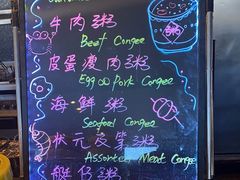 牛肉粥
Beef Congee
皮蛋瘦肉粥
Egg & Pork Congee
海鮮粥
Seafood Congee
状元及第粥
Assorted Meat Congee
艇仔粥